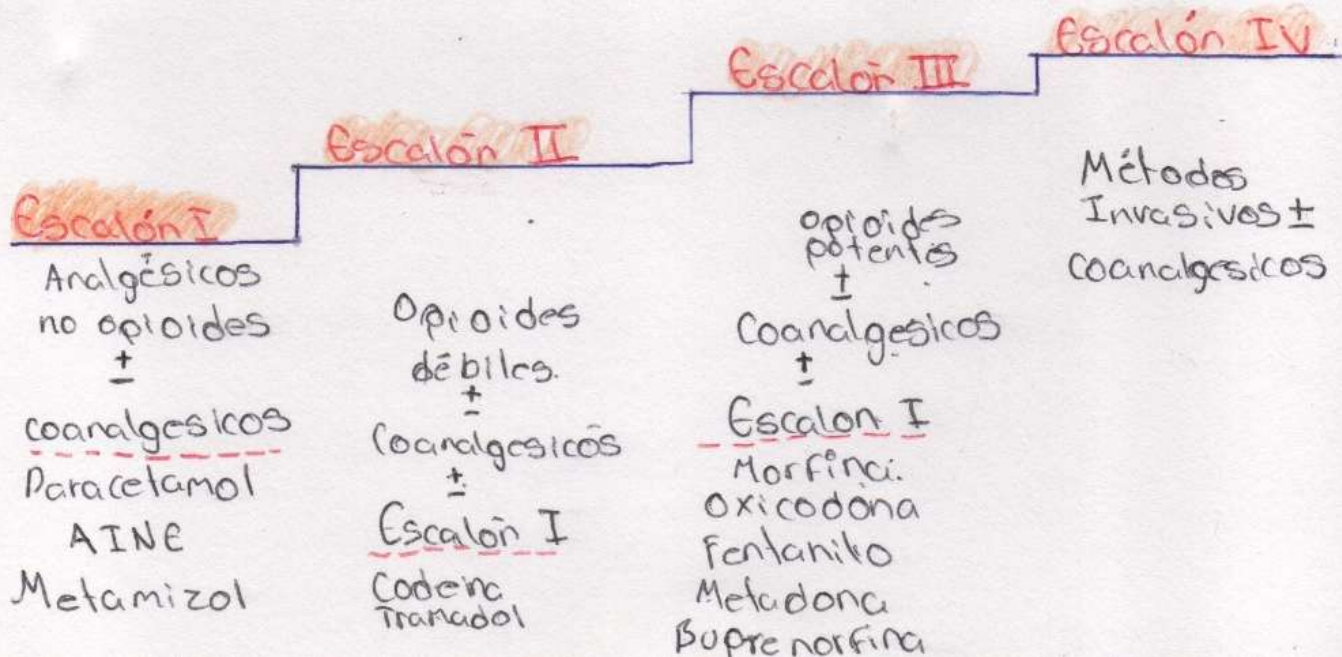 Escalón I
Analgésicos
no opioides
±
coanalgesicos
Paracetamol
AINE
Metamizol
Escalón II
Opioides
débiles.
±
Coanalgesicos
±
Escalón I
Codeina
Tramadol
Escalón III
opioides
potentes
±
Coanalgesicos
±
Escalon I
Morfina.
Oxicodona
Fentanilo
Metadona
Buprenorfina
Escalón IV
Métodos
Invasivos ±
coanalgesicos